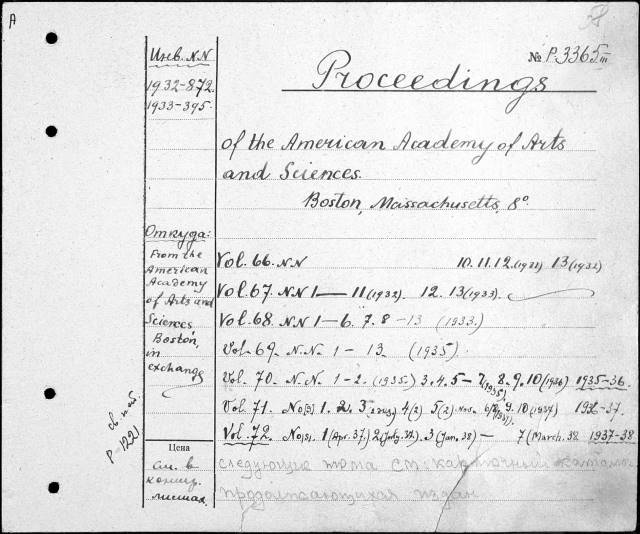 A
Инв. N.N
1932-872.
1933-395.
№ P.3365
Proceedings
of the American Academy of Arts
and Sciences.
Boston, Massachusetts, 8°.
Откуда:
From the
American
Academy
of Arts and
Sciences
Boston,
in
exchange
Vol. 66. NN 10. 11. 12. (1931) 13 (1932)
Vol. 67. NN 1 — 11 (1932). 12. 13 (1933).
Vol. 68. NN 1 — 6. 7. 8 - 13 (1933.)
Vol. 69. N.N. 1 - 13. (1935)
Vol. 70. N.N. 1 - 2. (1935.) 3. 4. 5 - 7 (1935). 8. 9. 10 (1936) 1935-36.
Vol. 71. No[s] 1. 2. 3 4(2) 5(2) 9. 10 (1937) 1936-37.
Vol. 72. No(s). 1 (Apr. 37.) 2 (July. 37.) 3 (Jan. 38) — 7 (March. 38 1937-38
P-1221
Цена
см. в
конце
следующие тома см: карточный каталог
продолжающихся издан